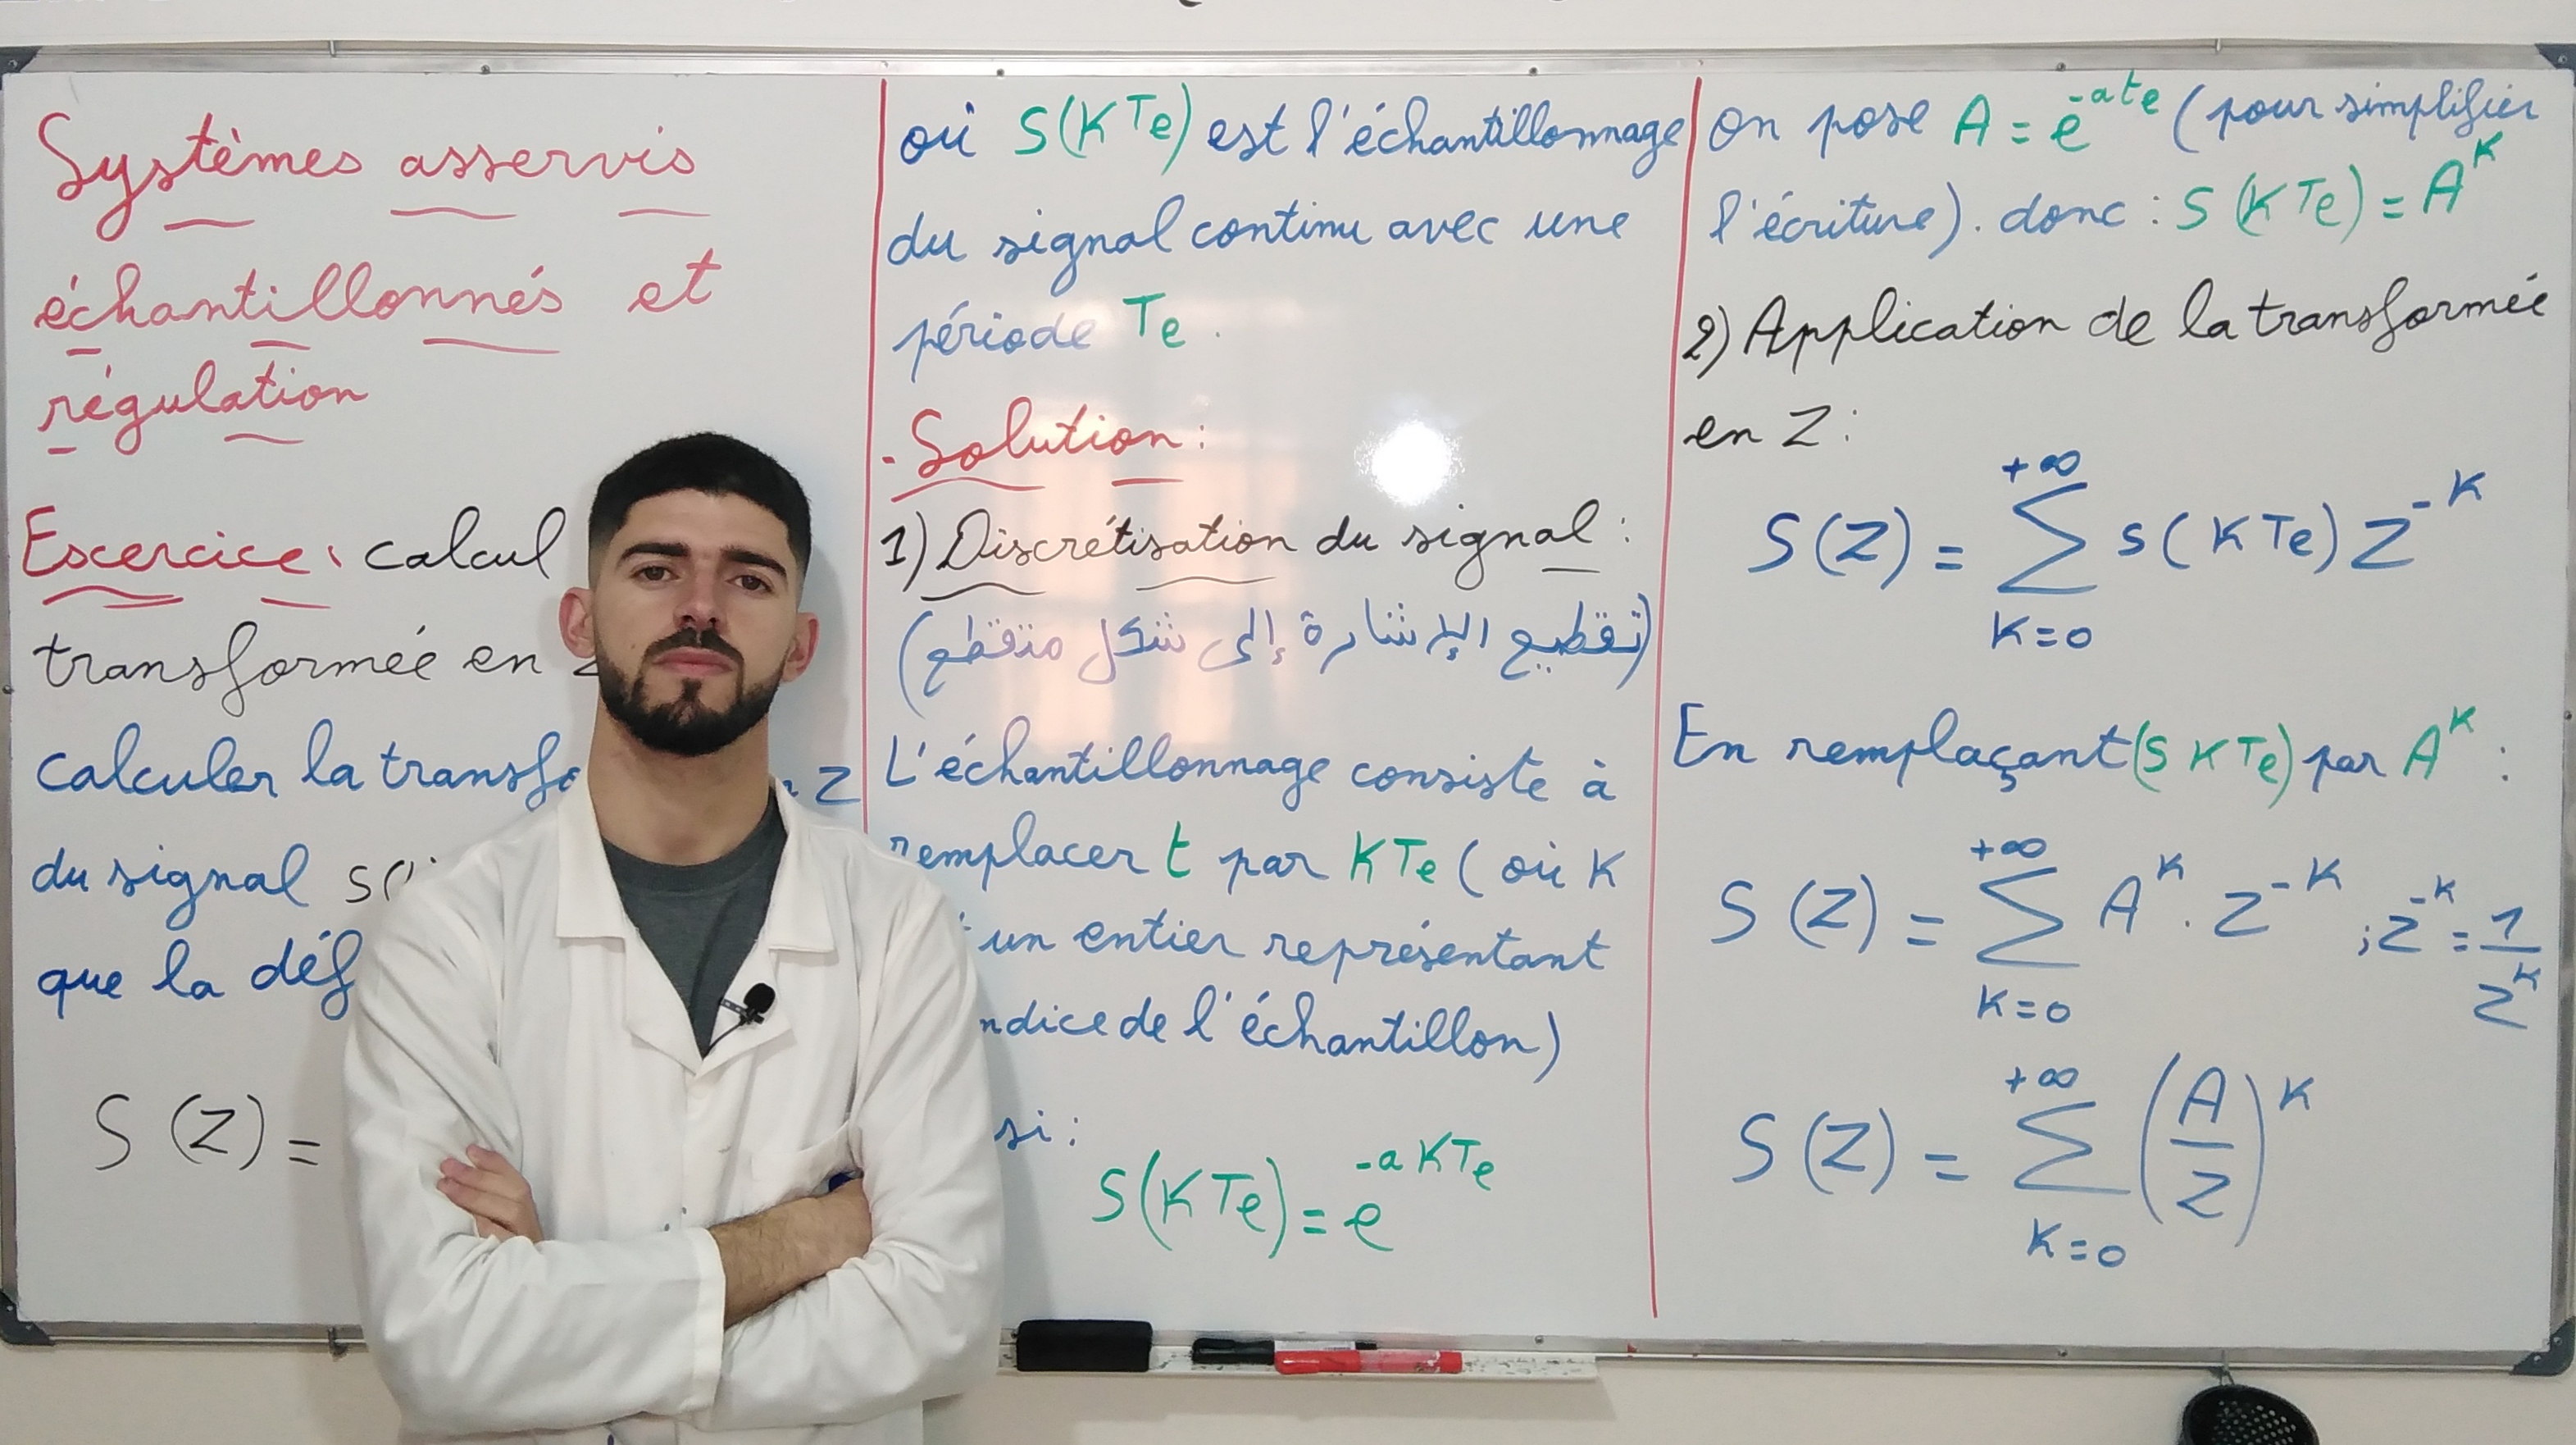 Systèmes asservis
échantillonnés et
régulation
Exercice: calcul
transformée en
calculer la transfo Z
du signal s(
que la déf
S(Z) =
où S(KTe) est l'échantillonnage
du signal continu avec une
période Te.
- Solution:
1) Discrétisation du signal:
(تقطيع الإشارة إلى شكل متقطع)
L'échantillonnage consiste à
remplacer t par KTe (où K
un entier représentant
ndice de l'échantillon)
si:
S(KTe) = e^{-aKTe}
On pose A = e^{-ate} (pour simplifier
l'écriture). donc: S(KTe) = A^K
2) Application de la transformée
en Z:
S(Z) = \sum_{K=0}^{+∞} s(KTe) Z^{-K}
En remplaçant (S KTe) par A^K:
S(Z) = \sum_{K=0}^{+∞} A^K . Z^{-K} ; Z^{-K} = \frac{1}{Z^K}
S(Z) = \sum_{K=0}^{+∞} (\frac{A}{Z})^K